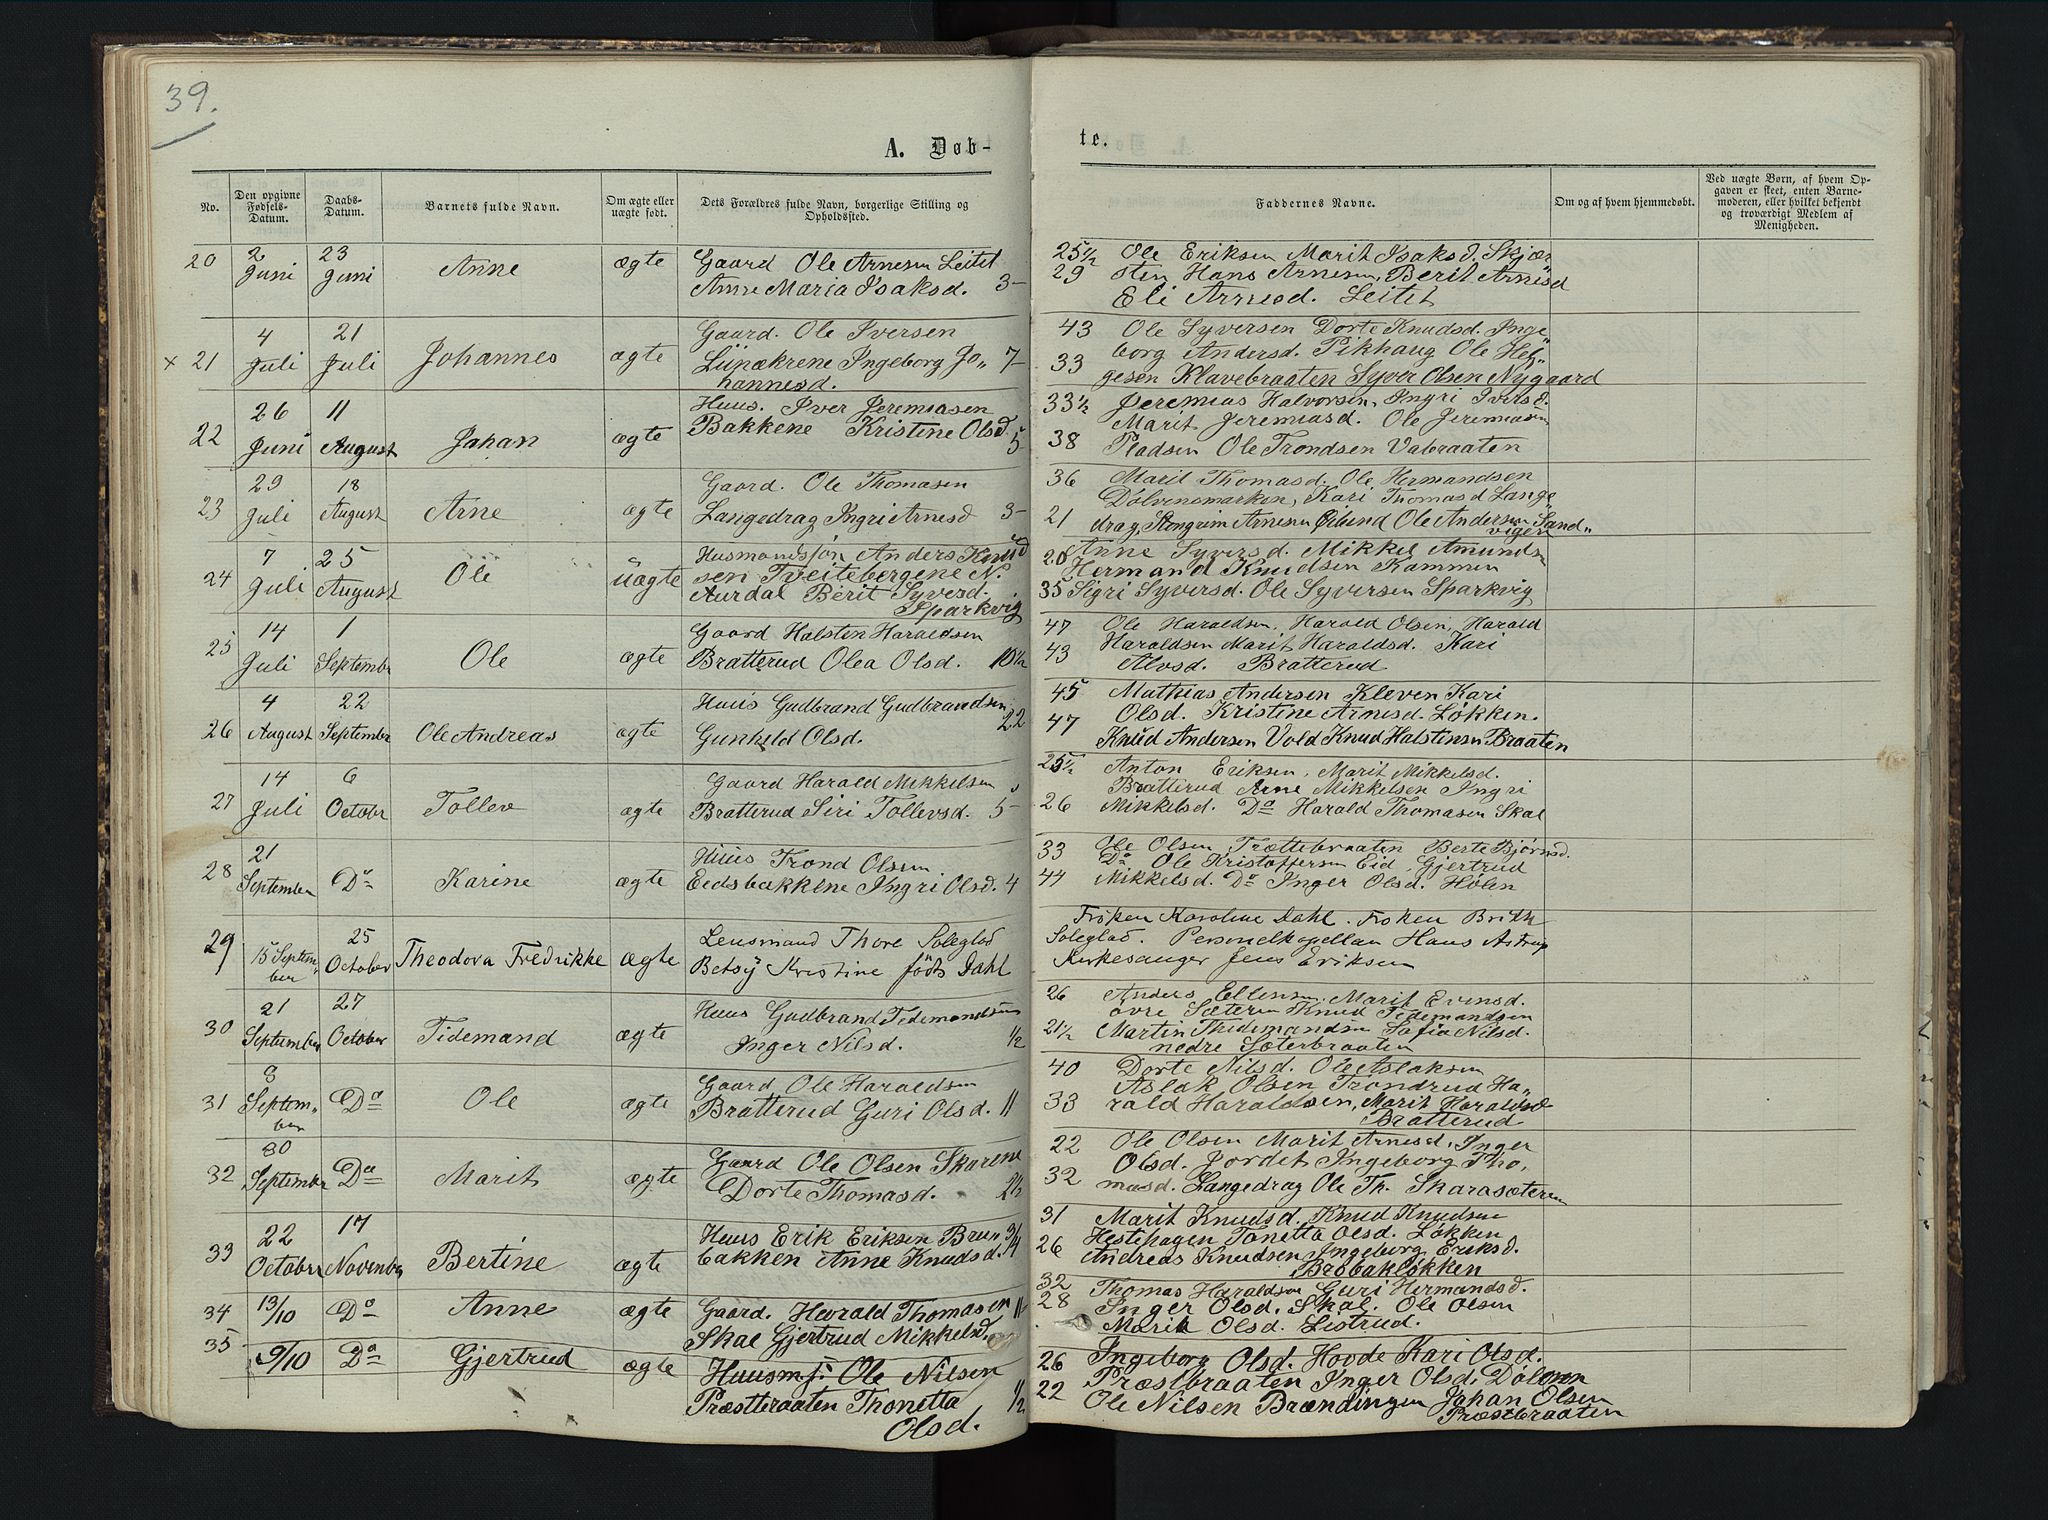 39.
A. Døb-
te.
No.
Den opgivne Fødsels-Datum.
Daabs-Datum.
Barnets fulde Navn.
Om ægte eller uægte født.
Dets Forældres fulde Navn, borgerlige Stilling og Opholdssted.
Faddernes Navne.
Om og af hvem hjemmedøbt.
Ved uægte Børn, af hvem Opgaven er skeet, enten Barnemoderen, eller hvilket bekjendt og troværdigt Medlem af Menigheden.
20 2 Juni 23 Juni Anne ægte
Gaard Ole Arnesen Leitet
Anne Maria Isaksd. 3-
25½ Ole Eriksen Marit Isaksd. Skjær
29 sten Hans Arnesen, Berit Arnesd
Eli Arnesd. Leitet
x 21 4 Juli 21 Juli Johannes ægte
Gaard. Ole Iversen
Liinækrene Ingeborg Jo„ 7-
hannesd.
43 Ole Syversen Dorte Knudsd. Inge„
33 borg Andersd. Pikhaug Ole Hel„
gesen Klavebraaten Syver Olsen Nygaard
22 26 Juni 11 August Johan ægte
Huus. Iver Jeremiasen
Bakkene Kristine Olsd 5-
33½ Jeremias Halvorsen, Ingri Iversd.
Marit Jeremiasd. Ole Jeremiasen
38 Pladsen Ole Trondsen Vabraaten
23 29 Juli 18 August Arne ægte
Gaard. Ole Thomasen
Langedrag Ingri Arnesd 3-
36 Marit Thomasd. Ole Hermandsen
Dølvenemarken, Kari Thomasd Lange„
21 drag, Stengrim Arnesen Øilund Ole Andersen Sand„
vigen
24 7 Juli 25 August Ole uægte
Husmandssøn Anders Knud
sen Tveitebergene N.
Aurdal Berit Syversd.
Sparkvig
20 Anne Syversd. Mikkel Amundsen
Hermand Knudsen Kammen
35 Sigri Syversd. Ole Syversen Sparkvig
25 14 Juli 1 Septembr Ole ægte
Gaard Halsten Haraldsen
Bratterud Olea Olsd. 10½
47 Ole Haraldsen, Harald Olsen, Harald
43 Haraldsen Marit Haraldsd. Kari
Alvsd. Bratterud
26 4 August 22 Septembr Ole Andreas ægte
Huus Gudbrand Gudbrandsen
Gunhild Olsd. 22
45 Mathias Andersen Kleven Kari
47 Olsd. Kristine Arnesd. Løkken.
Knud Andersen Vold Knud Halstensen Braaten
27 14 Juli 6 Octobr Tollev ægte
Gaard Harald Mikkelsen
Bratterud Siri Tollevsd. 5-
25½ Anton Eriksen, Marit Mikkelsd.
Bratterud Arne Mikkelsen Ingri
26 Mikkelsd. Do Harald Thomasen Skal
28 21 September Do Karine ægte
Huus Trond Olsen
Eedsbakkene Ingri Olsd. 4
33 Ole Olsen Trættebraaten Berte Bjørnsd.
Do Ole Kristoffersen Eid, Gjertrud
44 Mikkelsd. Do Inger Olsd. Hølen
29 15 Septem„ber 25 October Theodora Fredrikke ægte
Lensmand Thore Soleglad
Betsy Kristine født Dahl
Frøken Karoline Dahl. Frøken Brith
Soleglad. Personelkapellan Hans Astrup
Kirkesanger Jens Eriksen
30 21 September 27 October Tidemand ægte
Huus Gudbrand Tidemandsen
Inger Nilsd. ½
26 Anders Ellensen. Marit Evensd.
øvre Sæteren Knud Tidemandsen
21½ Martin Thidemandsen Sofia Nilsd.
nedre Sæterbraaten
31 8 Septem„ber Do Ole ægte
Gaard Ole Haraldsen
Bratterud Guri Olsd. 11
40 Dorte Nilsd. Ole Aslaksen
Aslak Olsen Trondrud Ha„
33 rald Haraldsen, Marit Haraldsd
Bratterud
32 30 Septembr Do Marit ægte
Gaard Ole Olsen Skarene
Dorte Thomasd. 2½
22 Ole Olsen Marit Arnesd, Inger
Olsd. Jordet Ingeborg Tho,
32 masd. Langedrag Ole Th. Skarasæteren
33 22 Octobr 17 Novenbr Bertine ægte
Huus Erik Eriksen Brun 3/4
bakken Anne Knudsd.
31 Marit Knudsd. Knud Knudsen
Hestehagen Tonetta Olsd. Løkken
26 Andreas Knudsen Ingeborg Eriksd.
Brobakløkken
34 13/10 Do Anne ægte
Gaard. Harald Thomasen 11-
Skal Gjertrud Mikkelsd.
32 Thomas Haraldsen Guri Hermandsd.
28 Inger Olsd. Skal. Ole Olsen
Marit Olsd. Listrud.
35 9/10 Do Gjertrud ægte
Huusm. f. Ole Nilsen
Præstteraaten Thonetta ½
Olsd.
26 Ingeborg Olsd. Hovde Kari Olsd.
Præstbraaten Inger Olsd, Dølven
22 Ole Nilsen Brændingen Johan Olsen
Præstbraaten